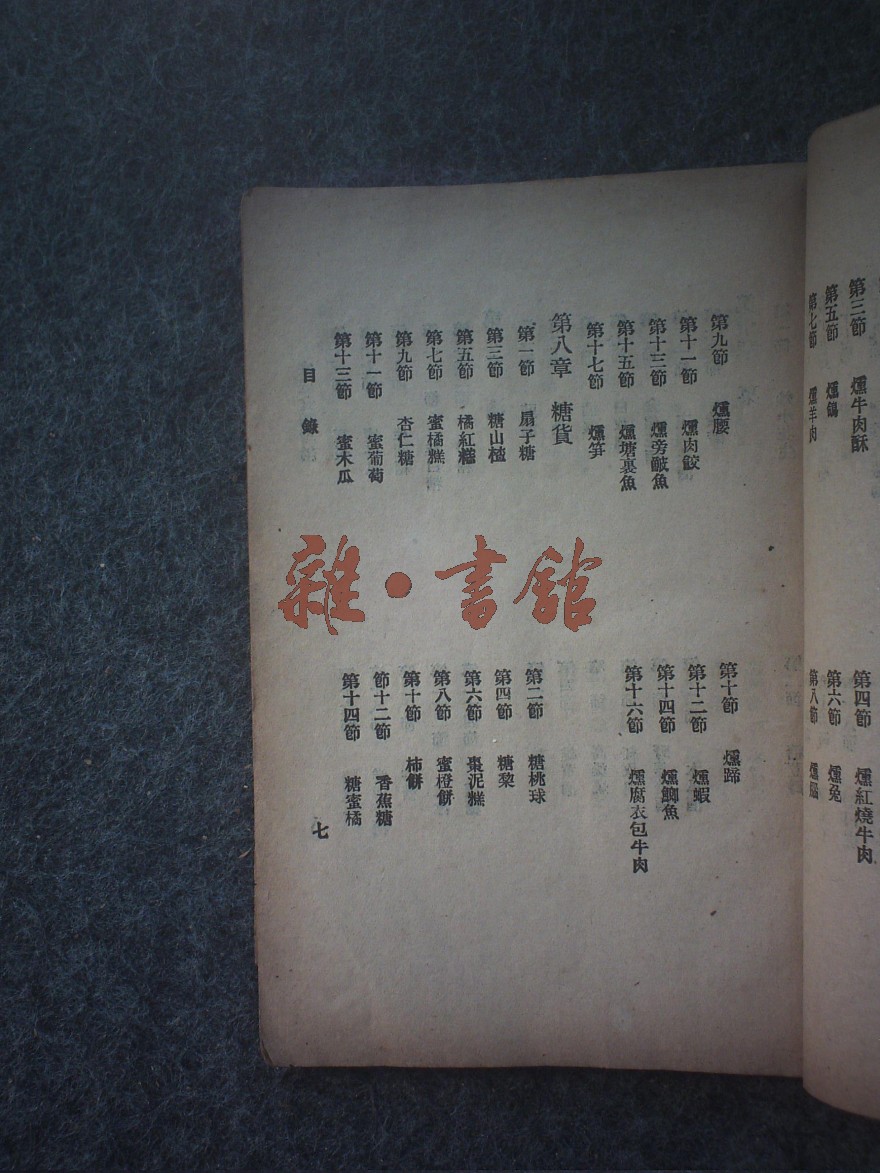 第三節　燻牛肉酥
第四節　燻紅燒牛肉
第五節　燻鴿
第六節　燻兔
第七節　燻羊肉
第八節　燻腦
第九節　燻腰
第十節　燻蹄
第十一節　燻肉餃
第十二節　燻蝦
第十三節　燻旁皮魚
第十四節　燻鯽魚
第十五節　燻塘裏魚
第十六節　燻腐衣包牛肉
第十七節　燻笋
第八章　糖貨
第一節　扇子糖
第二節　糖桃球
第三節　糖山楂
第四節　糖棃
第五節　橘紅糕
第六節　棗泥糕
第七節　蜜橘糕
第八節　蜜橙餅
第九節　杏仁糖
第十節　柿餅
第十一節　蜜葡萄
節十二節　香蕉糖
第十三節　蜜木瓜
第十四節　糖蜜橘
目錄
七
雜·書館